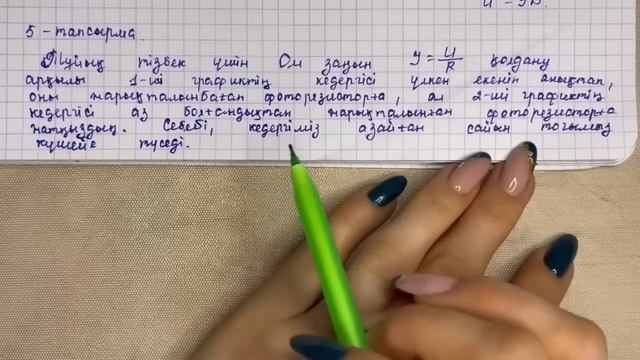 5 - тапсырма.
Тұйық тізбек үшін Ом заңын I = U/R қолдану
арқылы 1-ші графиктің кедергісі үлкен екенін анықтап,
оны жарықталынбаған фоторезисторға, ал 2-ші графиктің
кедергісі аз болғандықтан жарықталынған фоторезисторға
жатқыздық. Себебі, кедергіміз азайған сайын тоғымыз
күшейе түседі.